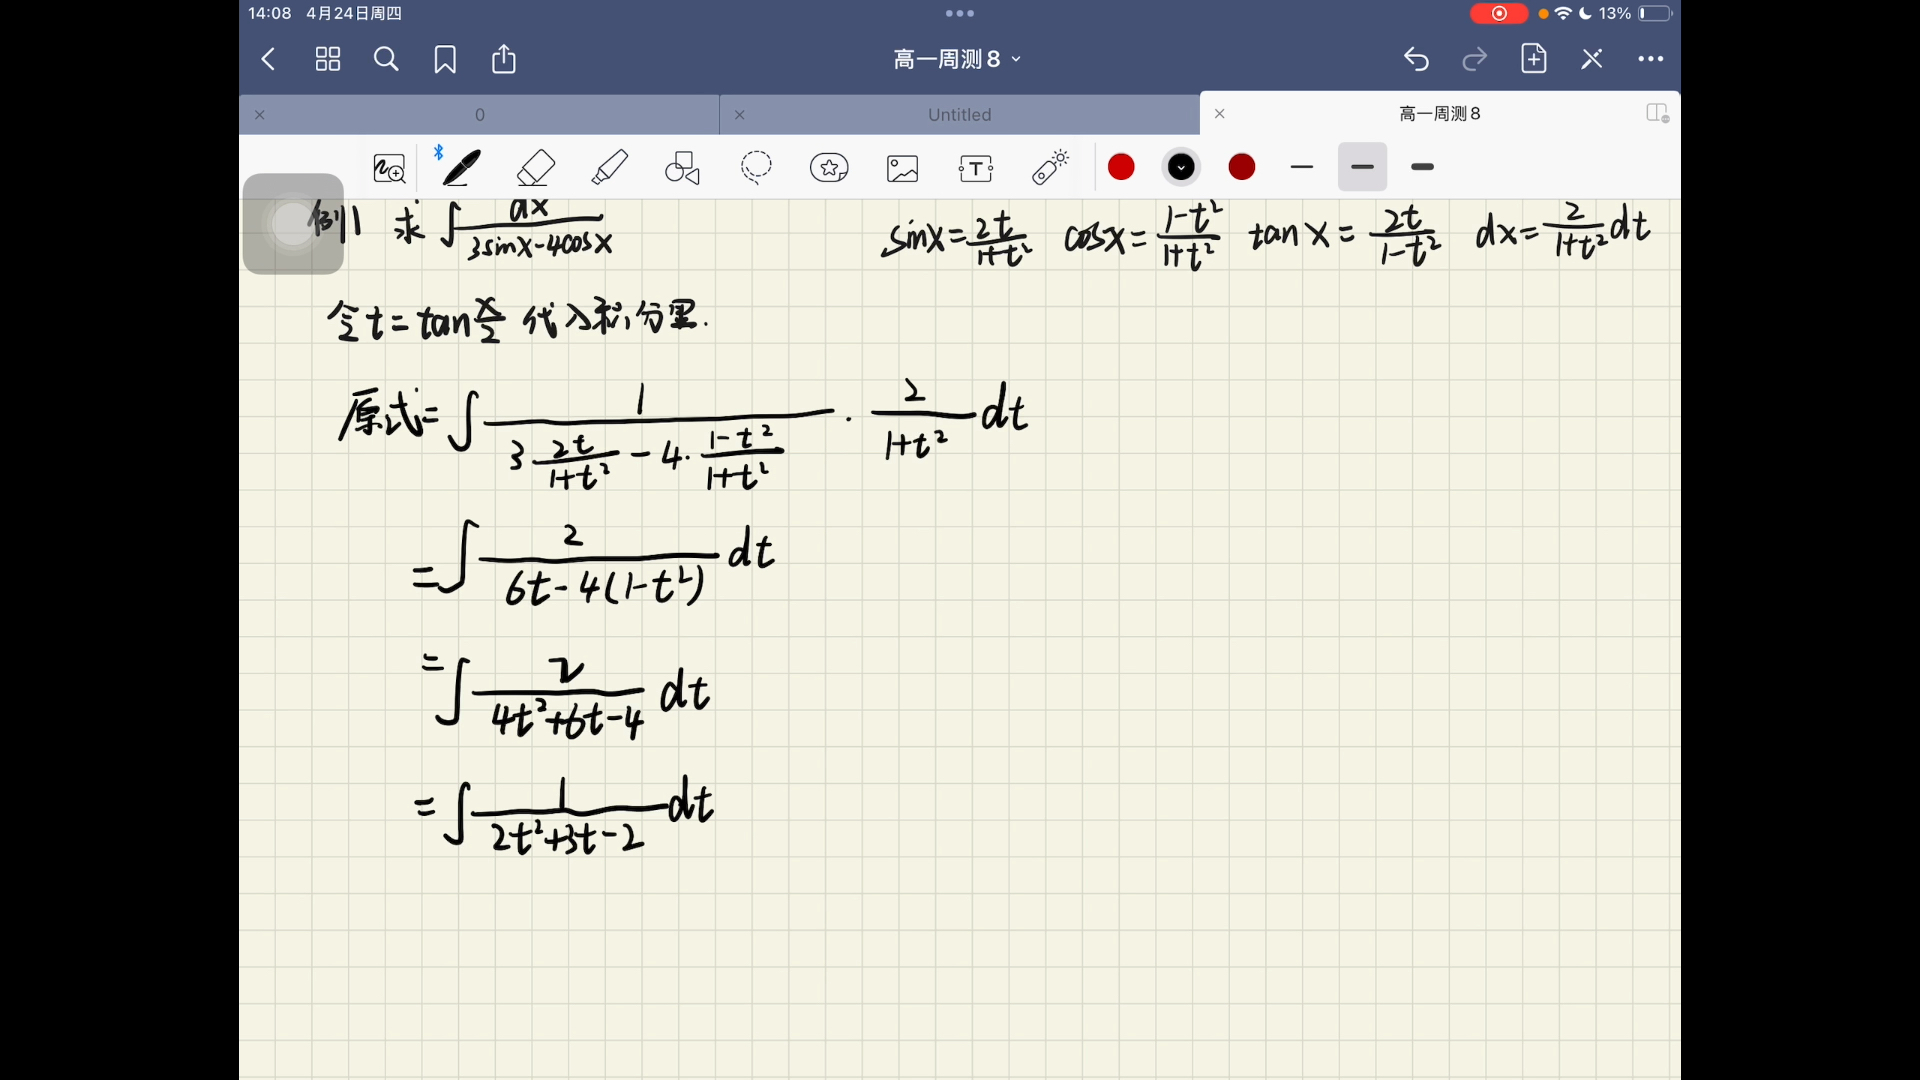 14:08 4月24日周四 13%
高一周测8
0 Untitled 高一周测8
例1 求 ∫ dx/(3sinx-4cosx) sinx=2t/(1+t²) cosx=(1-t²)/(1+t²) tanx=2t/(1-t²) dx=2/(1+t²)dt
令t=tan x/2 代入积分里.
原式=∫ 1/(3 2t/(1+t²) - 4·(1-t²)/(1+t²)) · 2/(1+t²) dt
=∫ 2/(6t-4(1-t²)) dt
=∫ 2/(4t²+6t-4) dt
=∫ 1/(2t²+3t-2) dt